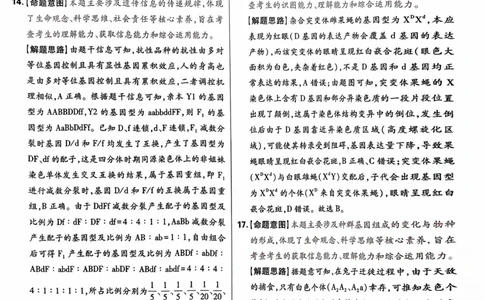 14.【命题意图】本题主要涉及遗传信息的传递规律,体现
了生命观念、科学思维、社会责任等核心素养,旨在考
查考生的理解能力、获取信息能力和综合运用能力。
【解题思路】由题干信息可知,抗性品种的抗性由多对
等位基因控制且具有显性基因累积效应,人的身高也
是由多对等位基因控制且具有累积效应,二者调控机
理相似,A正确。根据题干信息可知,亲本Y1的基因
型为AABBDDff,Y2的基因型为aabbddFF,则F₁的基
因型为AaBbDdFf。已知D、f连锁,d、F连锁,F₁减数分
裂时基因D/d和F/f均发生了互换,产生了基因型为
DF、df的配子,这是四分体时期同源染色体上的非姐妹
染色单体发生交叉互换的结果,属于基因重组,即F₁
进行减数分裂时,基因D/d和F/f的互换属于基因重
组,B正确。由于DdFf减数分裂产生配子的基因型及
比例为Df:dF:DF:df=4:4:1:1,AaBb减数分裂
产生配子的基因型及比例为AB:ab=1:1,自由组合
后可得F₁产生配子的基因型及比例为ABDf:abDf:
ABdF:abdF:ABDF:abDF:ABdf:abdf=4:4:4:
4:1:1:1:1,所占比例分别为1/5、1/5、1/5、1/5、1/20、1/20、
查考生的识图能力、理解能力和综合运用能力。
【解题思路】杂合突变体雌果蝇的基因型为XᴰXᵈ,本应
表现为红眼(D基因的表达产物会覆盖d基因的表达
产物),而该突变体的眼睛呈现红白嵌合花斑(眼色大
面积为白色,夹杂着红色),不是D基因和d基因均正
常表达的结果,A错误;由题图可知,突变体果蝇的X
染色体上含有D基因和部分异染色质的一段片段位置
出现了颠倒,这属于染色体结构变异中的倒位,发生倒
位后由于D基因靠近异染色质区域(高度螺旋化区
域),可能使其转录受到阻碍,基因表达量下降,导致果
蝇眼睛呈现红白嵌合花斑,B正确、C错误;突变体果蝇
(XᴰXᵈ)与白眼雄蝇(XᵈY)交配后,子代会出现基因型
为XᴰXᵈ的个体(Xᴰ来自突变体果蝇),眼睛呈现红白
嵌合花斑,D错误。故选B。
17.【命题意图】本题主要涉及种群基因组成的变化与物种
的形成,体现了生命观念、科学思维等核心素养,旨在
考查考生的获取信息能力、理解能力和综合运用能力。
【解题思路】据题意可知,在兔子迁徙过程中,由于天敌
的捕食,只有白色个体(A₂A₂、A₂A₃)幸存,可推知灰色个